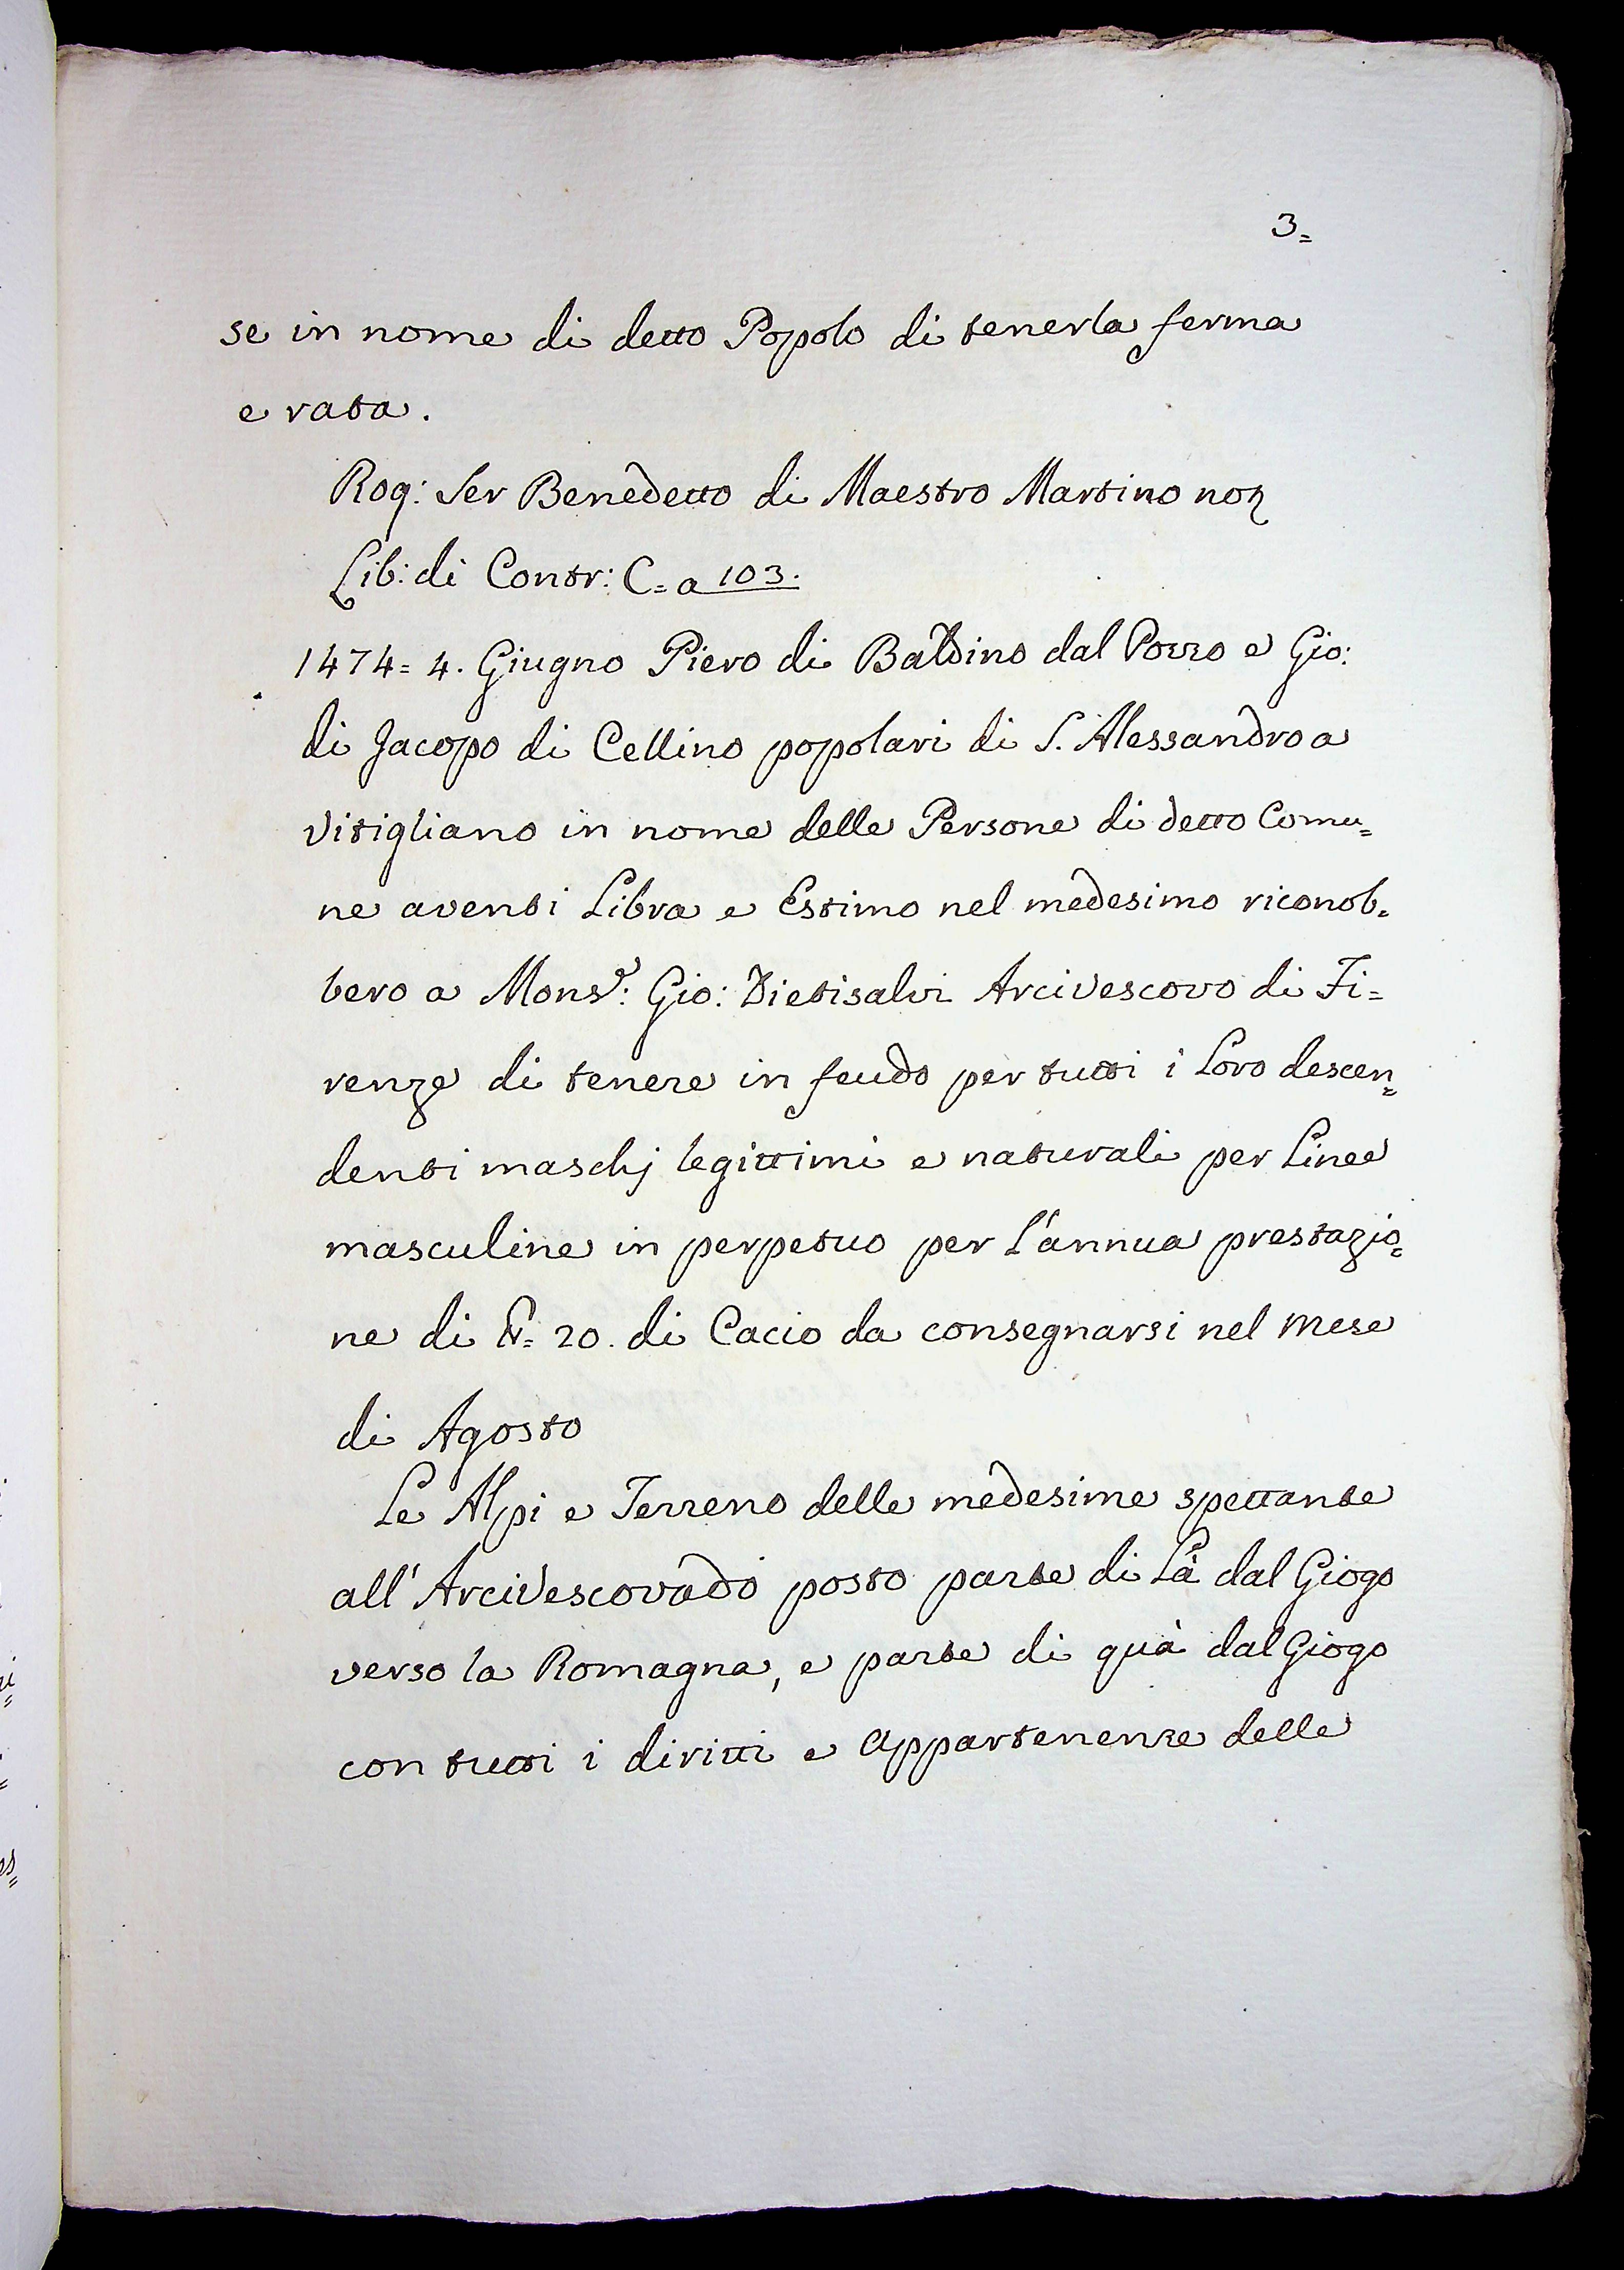 3=
se in nome di detto Popolo di tenerla ferma
e rata.
Rog: Ser Benedetto di Maestro Martino not
Lib: di Contr: C= a 103.
1474= 4. Giugno Piero di Baldino dal Pozzo e Gio:
di Jacopo di Cellino popolari di S. Alessandro a
Vitigliano in nome delle Persone di detto Comu=
ne aventi Libra e Estimo nel medesimo riconob=
bero a Monsr: Gio: Dietisalvi Arcivescovo di Fi=
renze di tenere in feudo per tutti i Loro descen=
denti maschj legittimi e naturali per Linee
masculine in perpetuo per l'annua prestazio=
ne di 20. di Cacio da consegnarsi nel mese
di Agosto
Le Alpi e Terreno delle medesime spettante
all' Arcivescovado posto parte di Là dal Giogo
verso la Romagna, e parte di quà dal Giogo
con tutti i diritti e Appartenenze delle